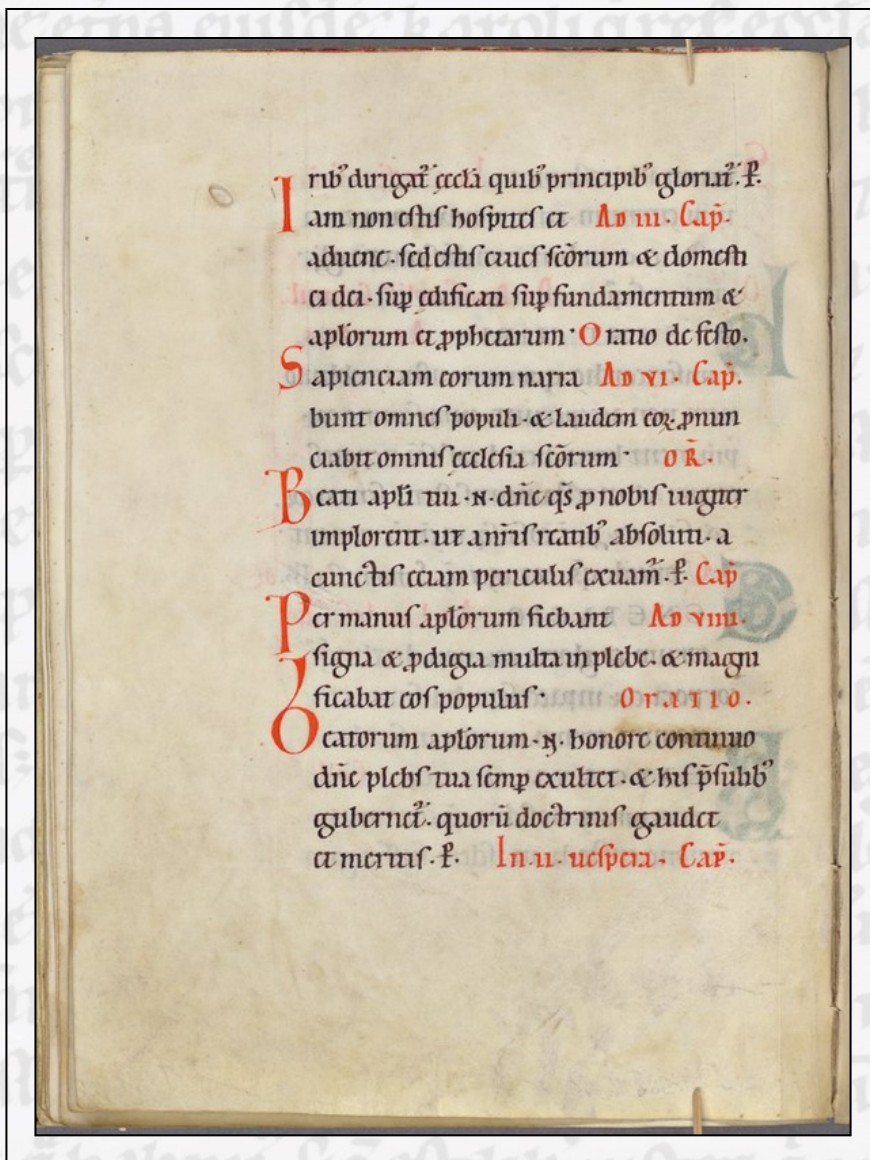 rib᾿ dirigat᷑ eccla quib᾿ principib᾿ gloriat᷑. P.
Iam non estis hospites et AD III. Cap̄.
aduene. sed estis ciues sc̄orum & domesti
ci dei. sup̱ edificati sup̱ fundamentum &
apl̄orum et ꝓphetarum. Oratio de festo.
Sapienciam eorum narra AD VI. Cap̄.
bunt omnes populi. & laudem eoꝝ ꝓnun
ciabit omnis ecclesia sc̄orum. OR̄.
Beati apl̄i tui .N. dn̄e qs̄ ꝓ nobis iugiter
implorent. ut a nr̄is reatib᾿ absoluti. a
cunctis eciam periculis exuam᷑. P. Cap̄
Per manus apl̄orum fiebant AD VIIII.
signa & ꝓdigia multa in plebe. & magni
ficabat eos populus. Oratio.
Beatorum apl̄orum .N. honore continuo
dn̄e plebs tua semp̱ exultet. & his p̄sulib᾿
gubernet᷑. quorū doctrinis gaudet
et meritis. P. In .II. uespera. Cap̄.